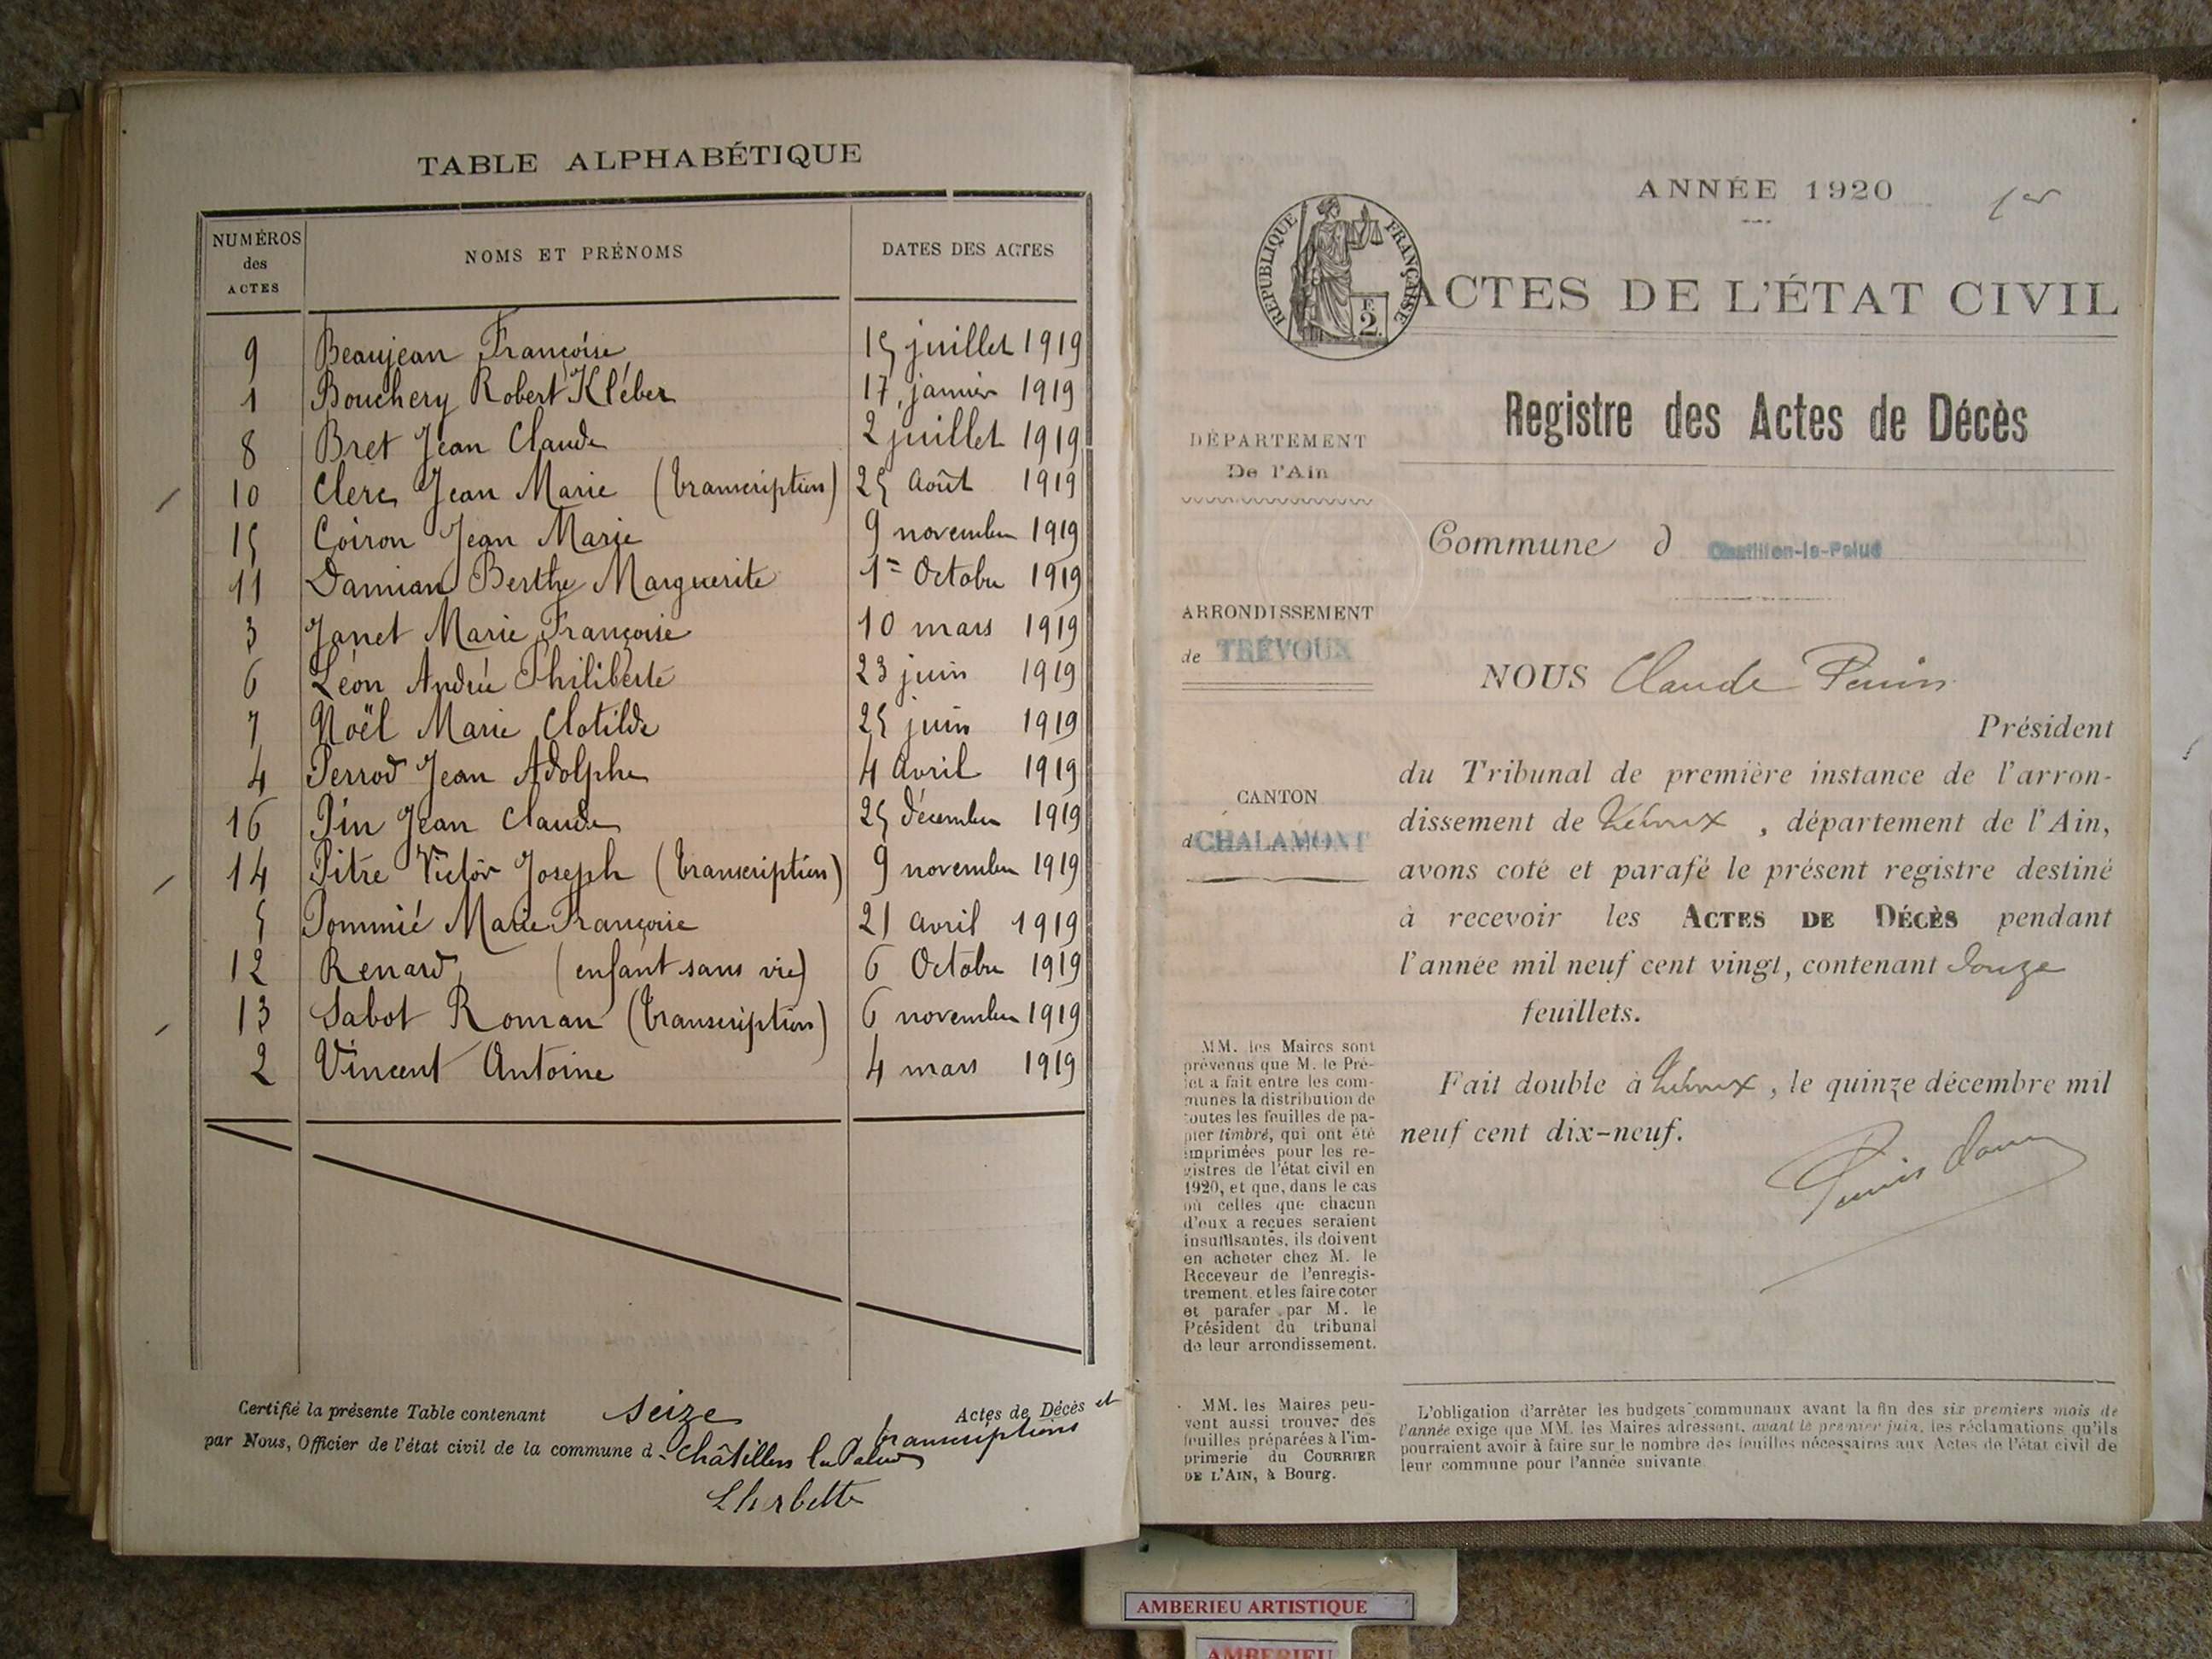 TABLE ALPHABÉTIQUE
NUMÉROS des ACTES NOMS ET PRÉNOMS DATES DES ACTES
9 Beaujean Françoise 15 juillet 1919
1 Bouchery Robert Kléber 17 janvier 1919
8 Bret Jean Claude 2 juillet 1919
10 Clerc Jean Marie (transcription) 25 Août 1919
15 Coiron Jean Marie 9 novembre 1919
11 Damian Berthe Marguerite 1er Octobre 1919
3 Janet Marie Françoise 10 mars 1919
6 Léon Andrée Philiberte 23 juin 1919
7 Noël Marie Clotilde 25 juin 1919
4 Perrod Jean Adolphe 4 avril 1919
16 Pin Jean Claude 25 décembre 1919
14 Pitre Victor Joseph (transcription) 9 novembre 1919
5 Pommié Marie Françoise 21 avril 1919
12 Renard (enfant sans vie) 6 Octobre 1919
13 Sabot Roman (transcription) 6 novembre 1919
2 Vincent Antoine 4 mars 1919
Certifié la présente Table contenant seize Actes de Décès et transcriptions
par Nous, Officier de l'état civil de la commune d Châtillon la Palud
Lherbette
ANNÉE 1920 1er
RÉPUBLIQUE FRANÇAISE
F.
2.
ACTES DE L'ÉTAT CIVIL
Registre des Actes de Décès
DÉPARTEMENT
De l'Ain
Commune d Chatillon-la-Palud
ARRONDISSEMENT
de TRÉVOUX
NOUS Claude
Président
du Tribunal de première instance de l'arron-
dissement de Trévoux, département de l'Ain,
avons coté et parafé le présent registre destiné
à recevoir les ACTES DE DÉCÈS pendant
l'année mil neuf cent vingt, contenant douze
feuillets.
Fait double à Trévoux, le quinze décembre mil
neuf cent dix-neuf.
CANTON
d CHALAMONT
MM. les Maires sont
prévenus que M. le Pré-
fet a fait entre les com-
munes la distribution de
toutes les feuilles de pa-
pier timbré, qui ont été
imprimées pour les re-
gistres de l'état civil en
1920, et que, dans le cas
où celles que chacun
d'eux a reçues seraient
insuffisantes, ils doivent
en acheter chez M. le
Receveur de l'enregis-
trement, et les faire coter
et parafer par M. le
Président du tribunal
de leur arrondissement.
MM. les Maires peu-
vent aussi trouver des
feuilles préparées à l'im-
primerie du COURRIER
DE L'AIN, à Bourg.
L'obligation d'arrêter les budgets communaux avant la fin des six premiers mois de
l'année exige que MM. les Maires adressent, avant le premier juin, les réclamations qu'ils
pourraient avoir à faire sur le nombre des feuilles nécessaires aux Actes de l'état civil de
leur commune pour l'année suivante.
AMBERIEU ARTISTIQUE
AMBERIEU